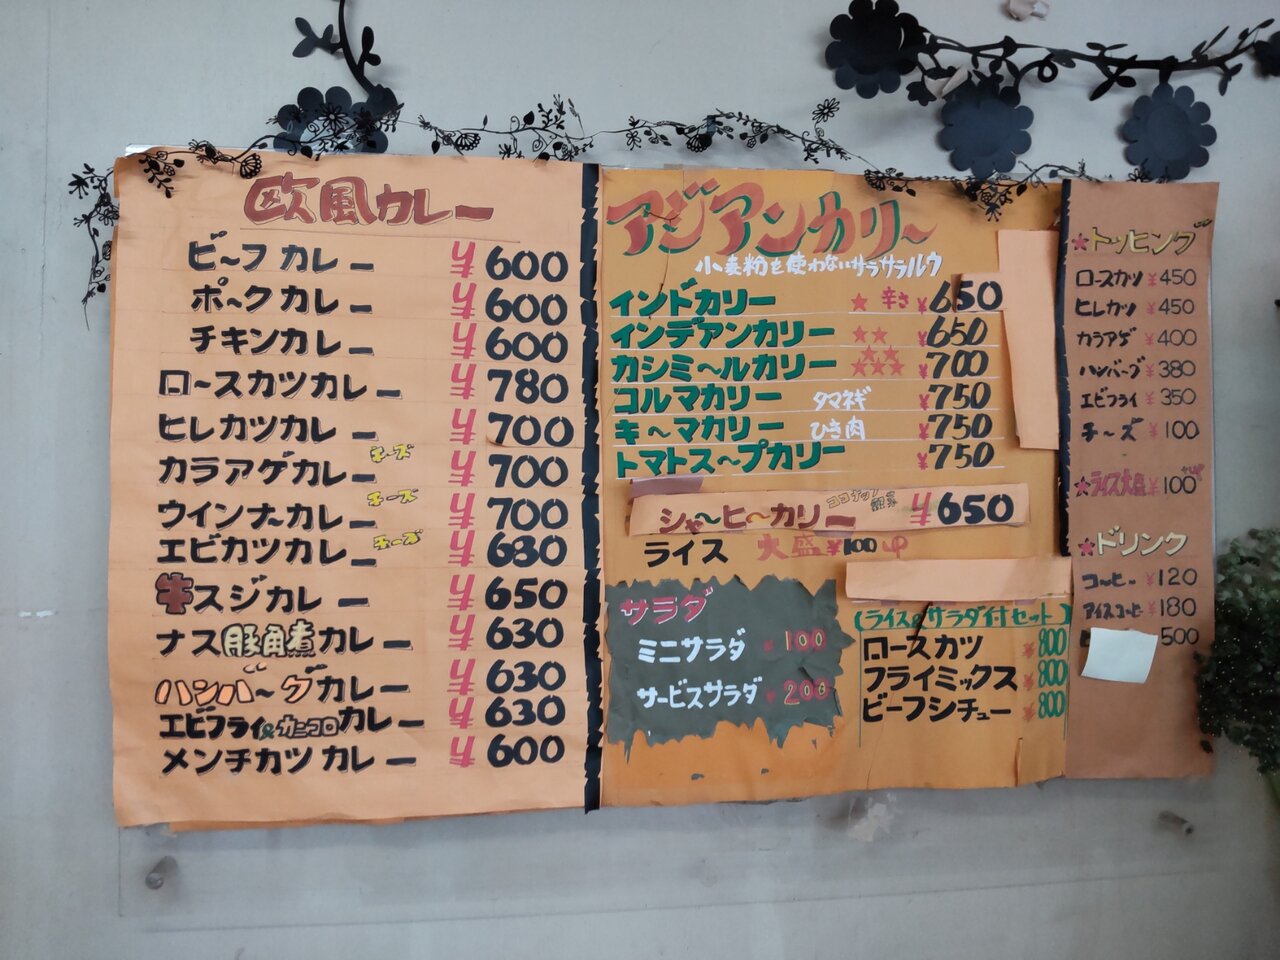 欧風カレー
ビーフカレー ¥600
ポークカレー ¥600
チキンカレー ¥600
ロースカツカレー ¥780
ヒレカツカレー ¥700
カラアゲカレー チーズ ¥700
ウインナーカレー チーズ ¥700
エビカツカレー チーズ ¥630
牛スジカレー ¥650
ナス豚角煮カレー ¥630
ハンバーグカレー ¥630
エビフライ&カニコロカレー ¥630
メンチカツカレー ¥600
アジアンカリー
小麦粉を使わないサラサラルウ
インドカリー ★ 辛さ ¥650
インデアンカリー ★★ ¥650
カシミールカリー ★★★★★ ¥700
コルマカリー タマネギ ¥750
キーマカリー ひき肉 ¥750
トマトスープカリー ¥750
シャーヒーカリー ココナッツ ¥650
ライス 大盛 ¥100 UP
サラダ
ミニサラダ ¥100
サービスサラダ ¥200
(ライス&サラダ付セット)
ロースカツ ¥800
フライミックス ¥800
ビーフシチュー ¥800
★トッピング
ロースカツ ¥450
ヒレカツ ¥450
カラアゲ ¥400
ハンバーグ ¥380
エビフライ ¥350
チーズ ¥100
★ライス大盛 ¥100 UP
★ドリンク
コーヒー ¥120
アイスコーヒー ¥180
500